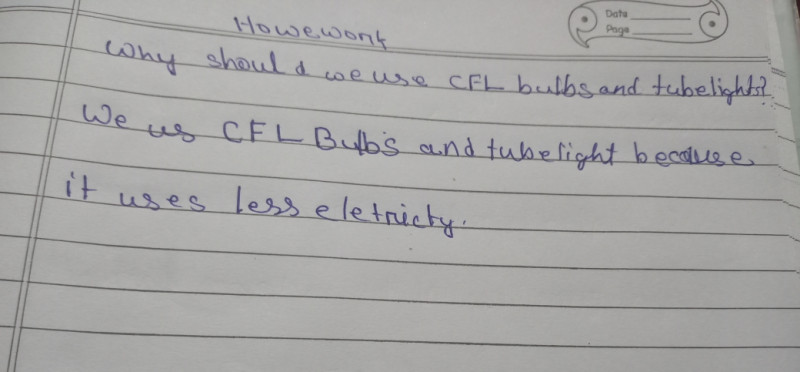 Date
Page
Howework
Why should we use CFL bulbs and tubelights?
We us CFL Bulbs and tubelight because
it uses less eletricty.